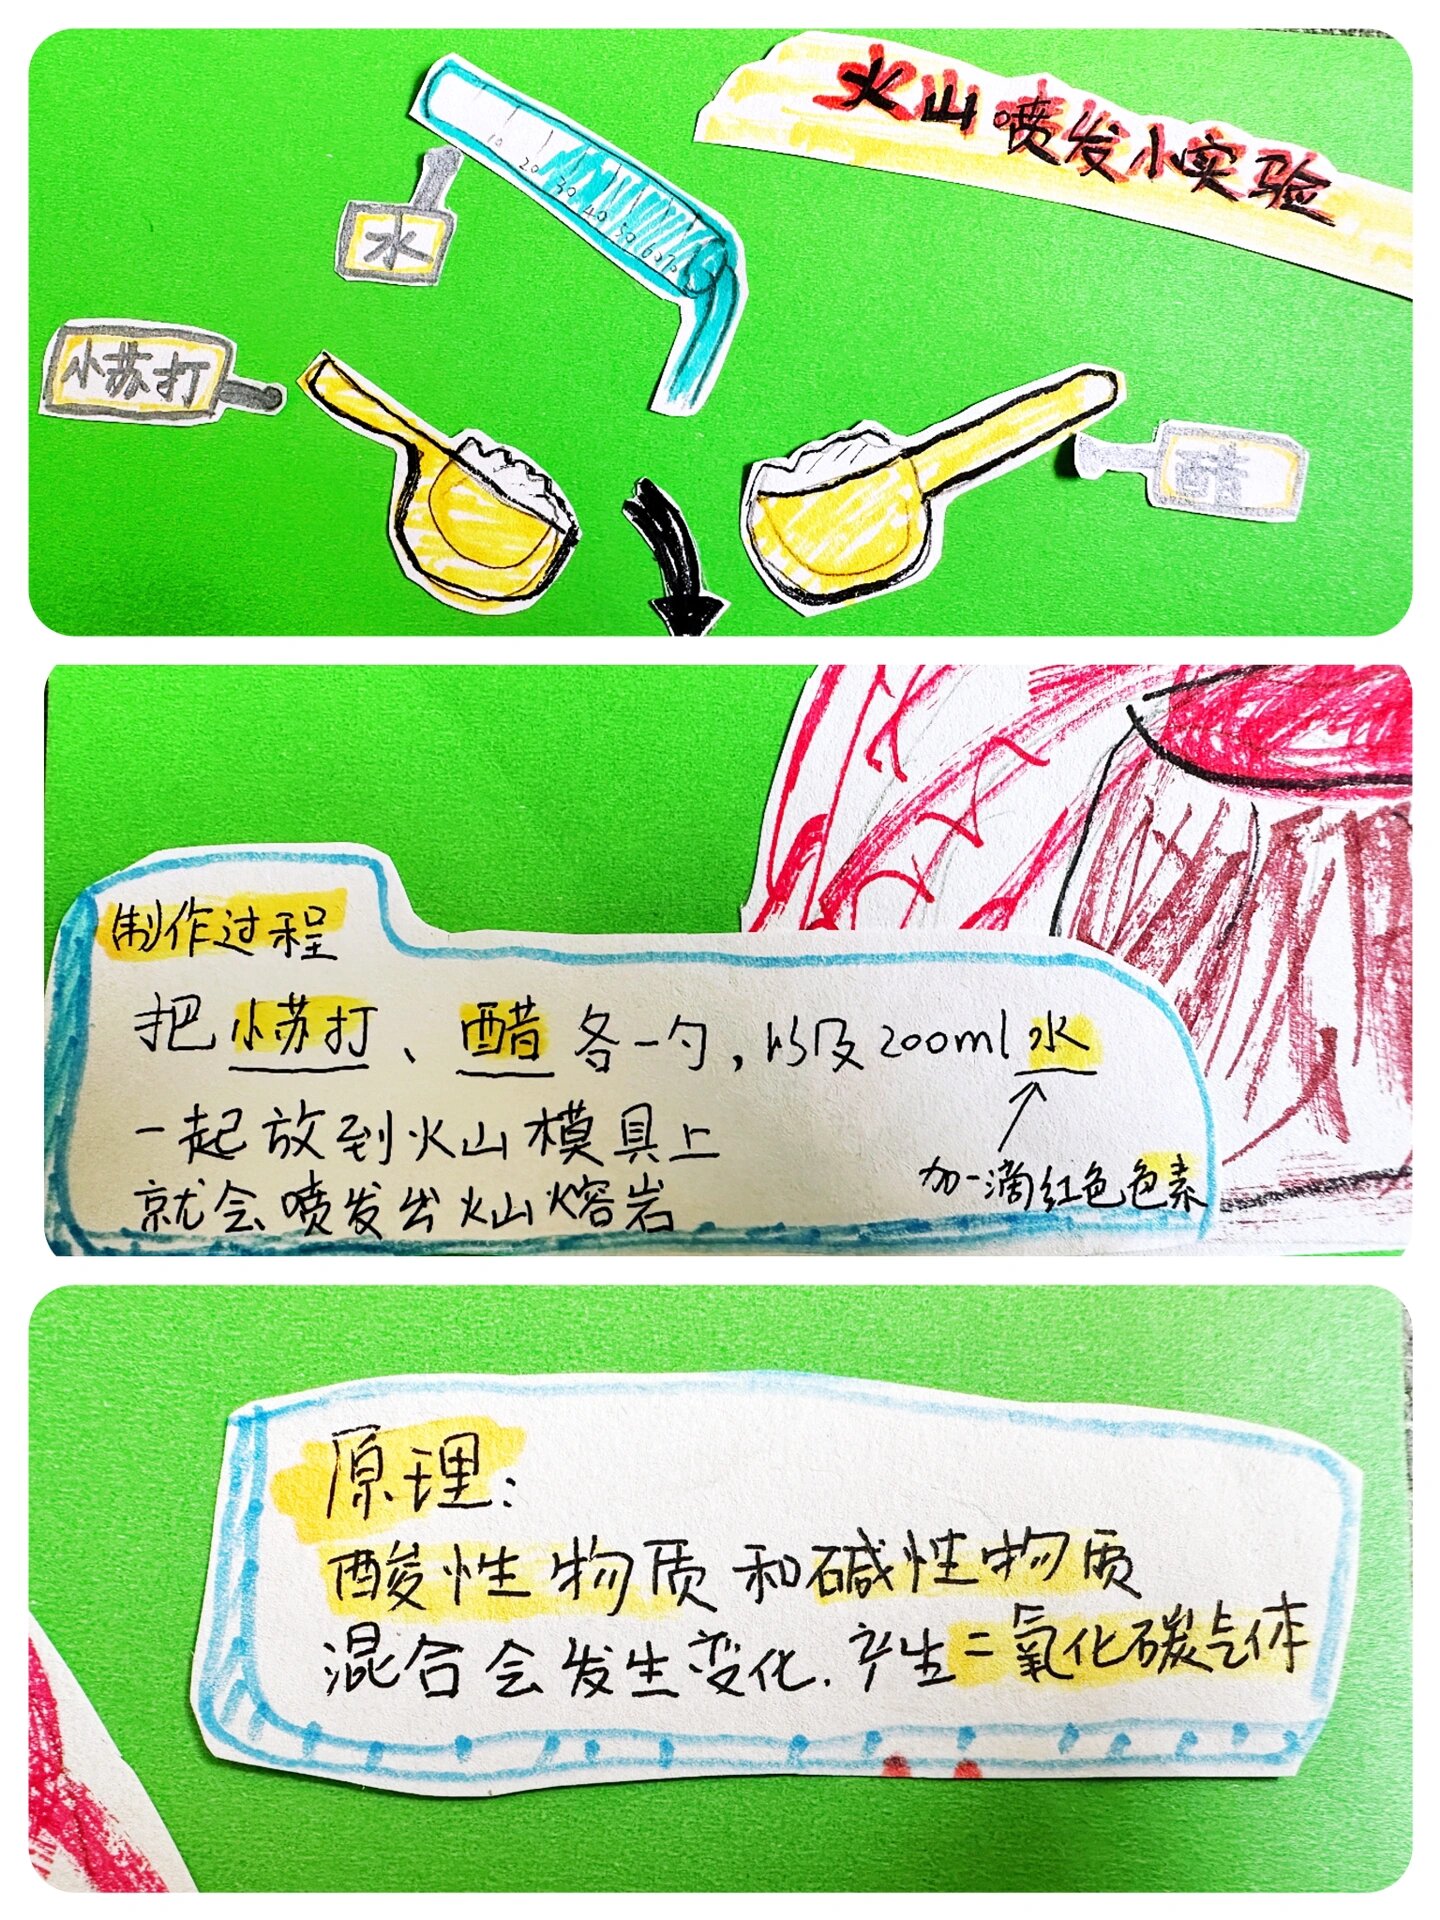 火山喷发小实验
10 20 30 40 50 60 70
水
小苏打
醋
制作过程
把小苏打、醋各一勺,以及200ml水
一起放到火山模具上
加一滴红色色素
就会喷发出火山熔岩
原理:
酸性物质和碱性物质
混合会发生变化.产生二氧化碳气体